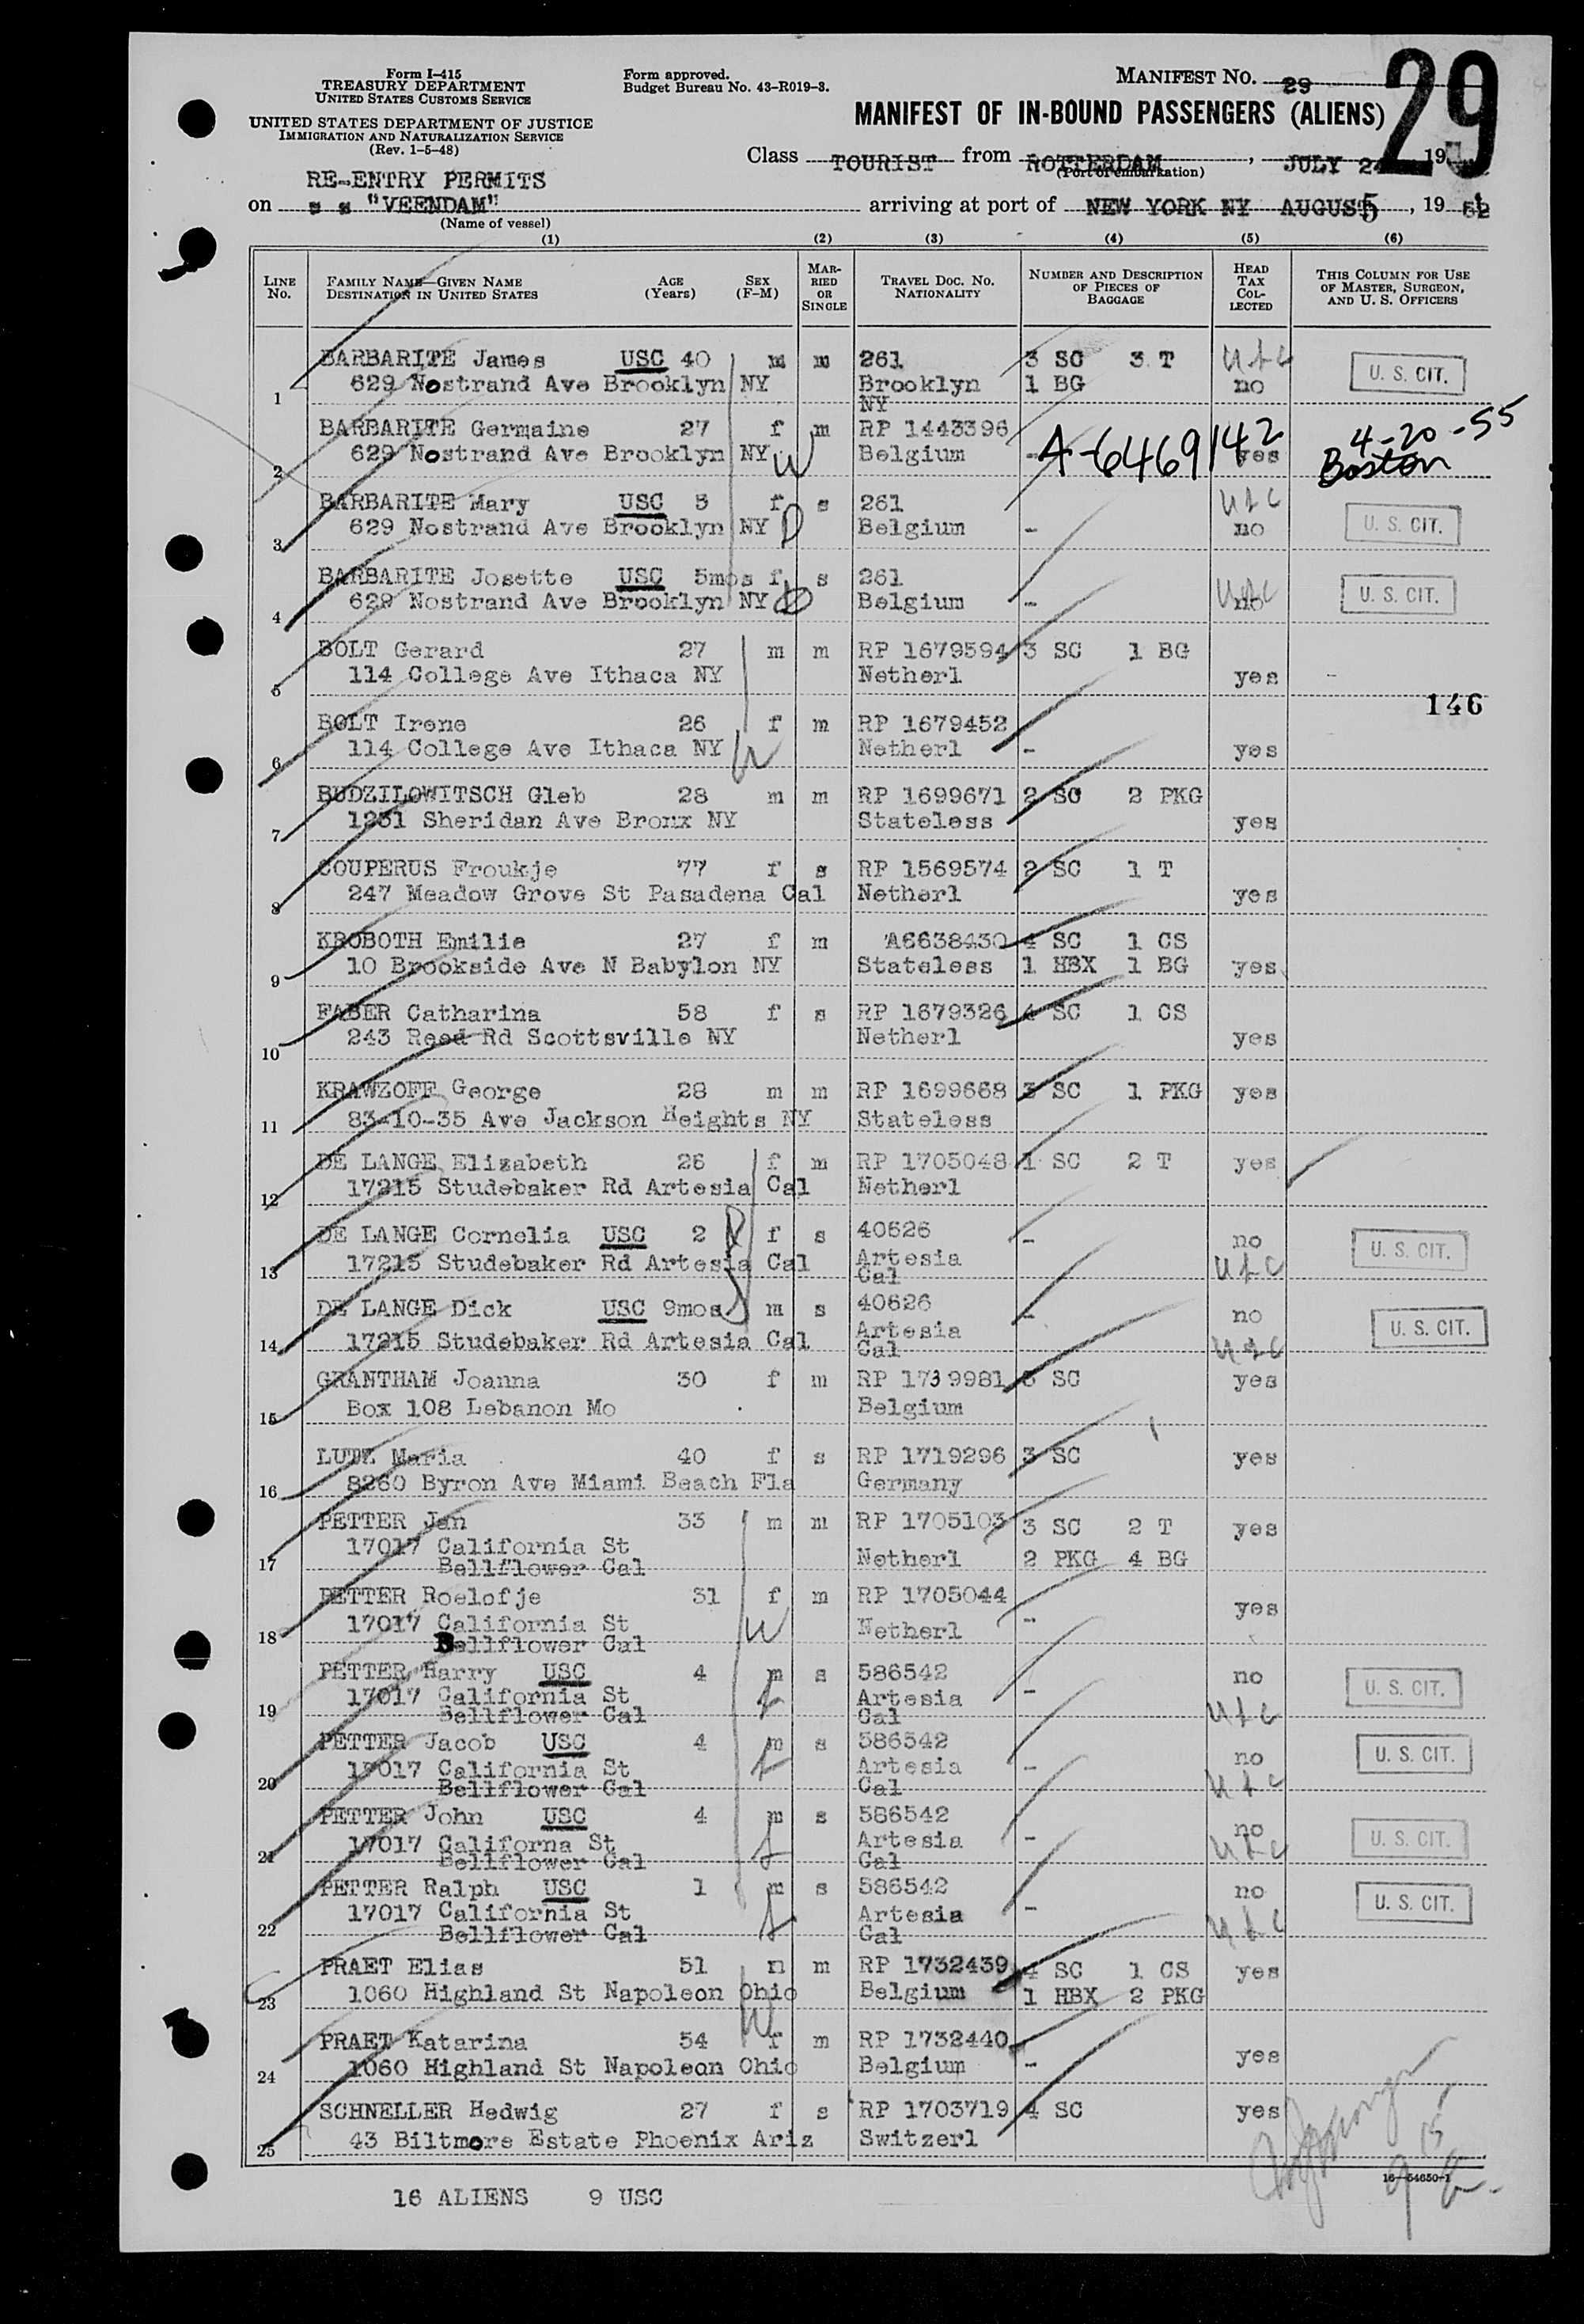 Form I-415
TREASURY DEPARTMENT
UNITED STATES CUSTOMS SERVICE
UNITED STATES DEPARTMENT OF JUSTICE
IMMIGRATION AND NATURALIZATION SERVICE
(Rev. 1-5-48)
Form approved.
Budget Bureau No. 43-R019-3.
MANIFEST NO. 29
29
MANIFEST OF IN-BOUND PASSENGERS (ALIENS)
Class TOURIST from ROTTERDAM, JULY 19
(Port of embarkation)
RE-ENTRY PERMITS
on s s "VEENDAM" arriving at port of NEW YORK NY AUGUST 5, 19 52
(Name of vessel)
(1) (2) (3) (4) (5) (6)
LINE No. FAMILY NAME—GIVEN NAME DESTINATION IN UNITED STATES AGE (Years) SEX (F-M) MARRIED OR SINGLE TRAVEL DOC. NO. NATIONALITY NUMBER AND DESCRIPTION OF PIECES OF BAGGAGE HEAD TAX COLLECTED THIS COLUMN FOR USE OF MASTER, SURGEON, AND U. S. OFFICERS
BARBARITE James USC 40 m m 261 3 SC 3 T
1 629 Nostrand Ave Brooklyn NY Brooklyn NY 1 BG no U. S. CIT.
BARBARITE Germaine 27 f m RP 1443396 A-6469142 4-20-55
2 629 Nostrand Ave Brooklyn NY W Belgium - yes Boston
BARBARITE Mary USC 3 f s 261
3 629 Nostrand Ave Brooklyn NY D Belgium - no U. S. CIT.
BARBARITE Josette USC 5mos f s 261
4 629 Nostrand Ave Brooklyn NY D Belgium - no U. S. CIT.
BOLT Gerard 27 m m RP 1679594 3 SC 1 BG
5 114 College Ave Ithaca NY Netherl yes
146
BOLT Irene 26 f m RP 1679452
6 114 College Ave Ithaca NY W Netherl - yes
BUDZILOWITSCH Gleb 28 m m RP 1699671 2 SC 2 PKG
7 1231 Sheridan Ave Bronx NY Stateless yes
COUPERUS Froukje 77 f s RP 1569574 2 SC 1 T
8 247 Meadow Grove St Pasadena Cal Netherl yes
KROBOTH Emilie 27 f m A6638430 4 SC 1 CS
9 10 Brookside Ave N Babylon NY Stateless 1 HBX 1 BG yes
FABER Catharina 58 f s RP 1679326 4 SC 1 CS
10 243 Reed Rd Scottsville NY Netherl yes
KRAWZOFF George 28 m m RP 1699668 3 SC 1 PKG yes
11 83-10-35 Ave Jackson Heights NY Stateless
DE LANGE Elizabeth 26 f m RP 1705048 1 SC 2 T yes
12 17215 Studebaker Rd Artesia Cal Netherl
DE LANGE Cornelia USC 2 f s 40626 - no
13 17215 Studebaker Rd Artesia Cal Artesia Cal U. S. CIT.
DE LANGE Dick USC 9mos m s 40626 - no
14 17215 Studebaker Rd Artesia Cal Artesia Cal U. S. CIT.
GRANTHAM Joanna 30 f m RP 1739981 SC yes
15 Box 108 Lebanon Mo Belgium
LUTZ Maria 40 f s RP 1719296 3 SC yes
16 8260 Byron Ave Miami Beach Fla Germany
PETTER Jan 33 m m RP 1705103 3 SC 2 T yes
17 17017 California St Netherl 2 PKG 4 BG
Bellflower Cal
PETTER Roelofje 31 f m RP 1705044 yes
18 17017 California St W Netherl -
Bellflower Cal
PETTER Harry USC 4 m s 586542 no
19 17017 California St Artesia - U. S. CIT.
Bellflower Cal Cal
PETTER Jacob USC 4 m s 586542 no
20 17017 California St Artesia - U. S. CIT.
Bellflower Cal Cal
PETTER John USC 4 m s 586542 no
21 17017 Californa St Artesia - U. S. CIT.
Bellflower Cal Cal
PETTER Ralph USC 1 m s 586542 no
22 17017 California St Artesia - U. S. CIT.
Bellflower Cal Cal
PRAET Elias 51 m m RP 1732439 4 SC 1 CS yes
23 1060 Highland St Napoleon Ohio Belgium 1 HBX 2 PKG
PRAET Katarina 54 f m RP 1732440
24 1060 Highland St Napoleon Ohio W Belgium - yes
SCHNELLER Hedwig 27 f s RP 1703719 4 SC yes
25 43 Biltmore Estate Phoenix Ariz Switzerl
16—54650-1
16 ALIENS 9 USC